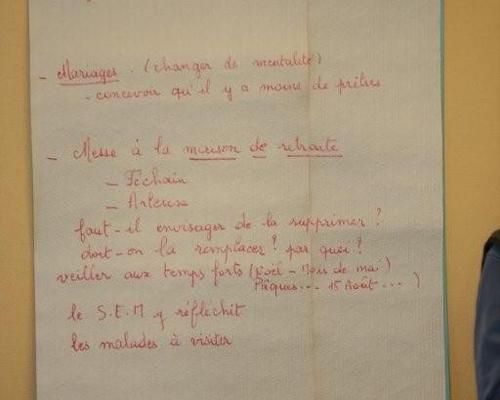 - Mariages. (changer de mentalité)
- concevoir qu'il y a moins de prêtres
- Messe à la maison de retraite
- Féchain
- Arleux
faut-il envisager de la supprimer ?
doit-on la remplacer ? par quoi ?
veiller aux temps forts (Noël - Mois de mai)
Pâques... 15 Août ... )
le S.E.M y réfléchit
les malades à visiter